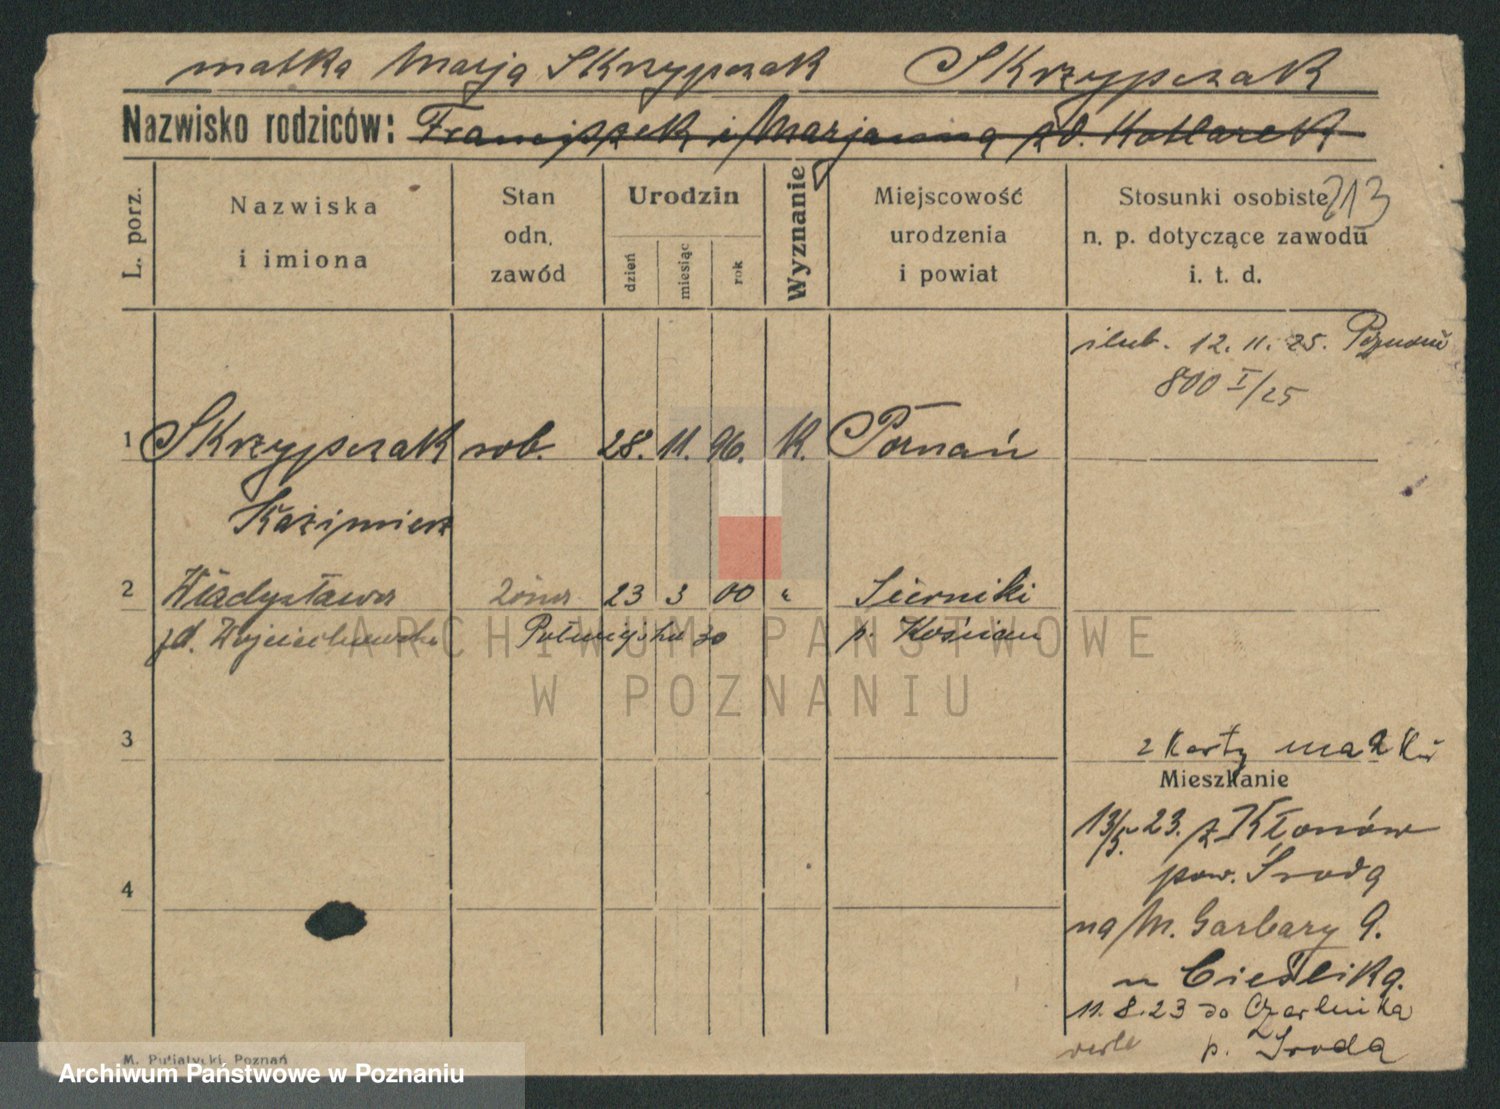 matka Marja Skrzypczak Skrzypczak
Nazwisko rodziców: Franciszek i Marjanna zd. Kotlarek
213
L. porz.
Nazwiska i imiona
Stan odn. zawód
Urodzin
dzień miesiąc rok
Wyznanie
Miejscowość urodzenia i powiat
Stosunki osobiste n. p. dotyczące zawodu i. t. d.
ślub. 12. 11. 25. Poznań
800 I/25
1 Skrzypczak rob. 28. 11. 96. K. Poznań
Kaźimierz
2 Władysława żona 23 3 00 " Sierniki
zd. Wojciechowska 30 p. Kościan
3
z karty matki
Mieszkanie
13/5. 23. z Kłonów
pow. Środa
4
na M. Garbary 9.
u Cieślika.
11. 8. 23 do Czarlinka
p. Środa
M. Putiatycki, Poznań
ARCHIWUM PAŃSTWOWE
W POZNANIU
Archiwum Państwowe w Poznaniu